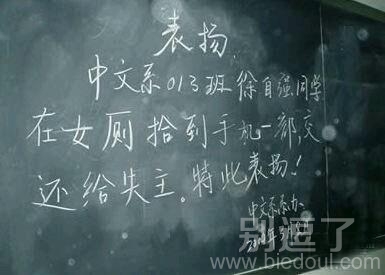 表扬
中文系013班徐自强同学
在女厕拾到手机一部,交
还给失主。特此表扬!
中文系
别逗了
www.biedoul.com